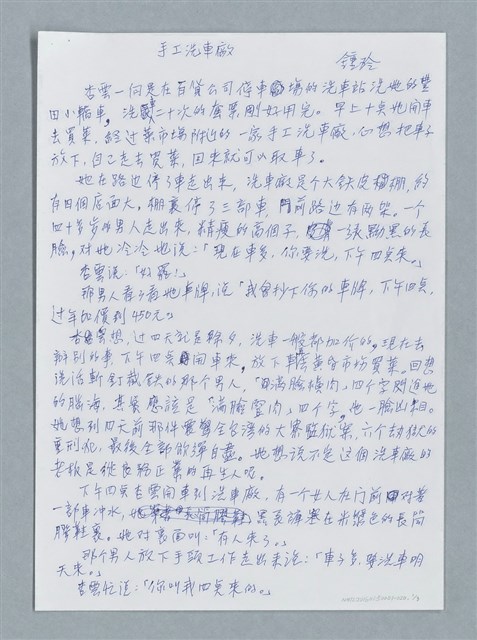 手工洗車廠
鍾玲
杏雲一向是在百貨公司停車場的洗車站洗她的豐
田小轎車，洗二十次的套票剛好用完。早上十点她開車
去買菜，經过菜市場附近的一家手工洗車廠，心想把車子
放下，自己走去買菜，回來就可以取車了。
她在路边停了車走出來，洗車廠是个大鉄皮棚，約
有四個店面大。棚裏停了三部車，門前路边有两架。一个
四十多歲的男人走出來，精瘦的高個子，一張黝黑的長
臉，对她冷冷地说：「現在車多，你要洗，下午四点來。」
杏雲说：「好罷！」
那男人看了看她車牌，说「我會抄下你的車牌，下午四点，
过年加價到450元。」
杏雲想，过四天就是除夕，洗車一般都加价的。現在去
辦别的事，下午四点開車來，放下車去黃昏市场買菜。回想
说话斬釘截鉄的那个男人，「滿臉橫肉」四个字閃过她
的腦海，其實應該是「滿臉
肉」四个字，他一臉凶相。
她想到四天前那件震驚全台湾的大寮監獄案，六个劫獄的
重刑犯，最後全部飲彈自盡。她想说不定这個洗車廠的
老板是從良歸正業的再生人呢。
下午四点杏雲開車到洗車廠，有一个女人在門前对着
一部車冲水，她
黑長褲塞在米綠色的長筒
膠鞋裏。她对裏面叫：「有人來了。」
那个男人放下手
工作走出來说：「車子多，要洗車明
天來。」
杏雲忙道：「你叫我四点來的。」